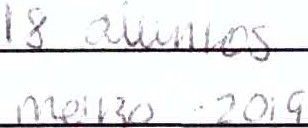 18 alunos
março 2019